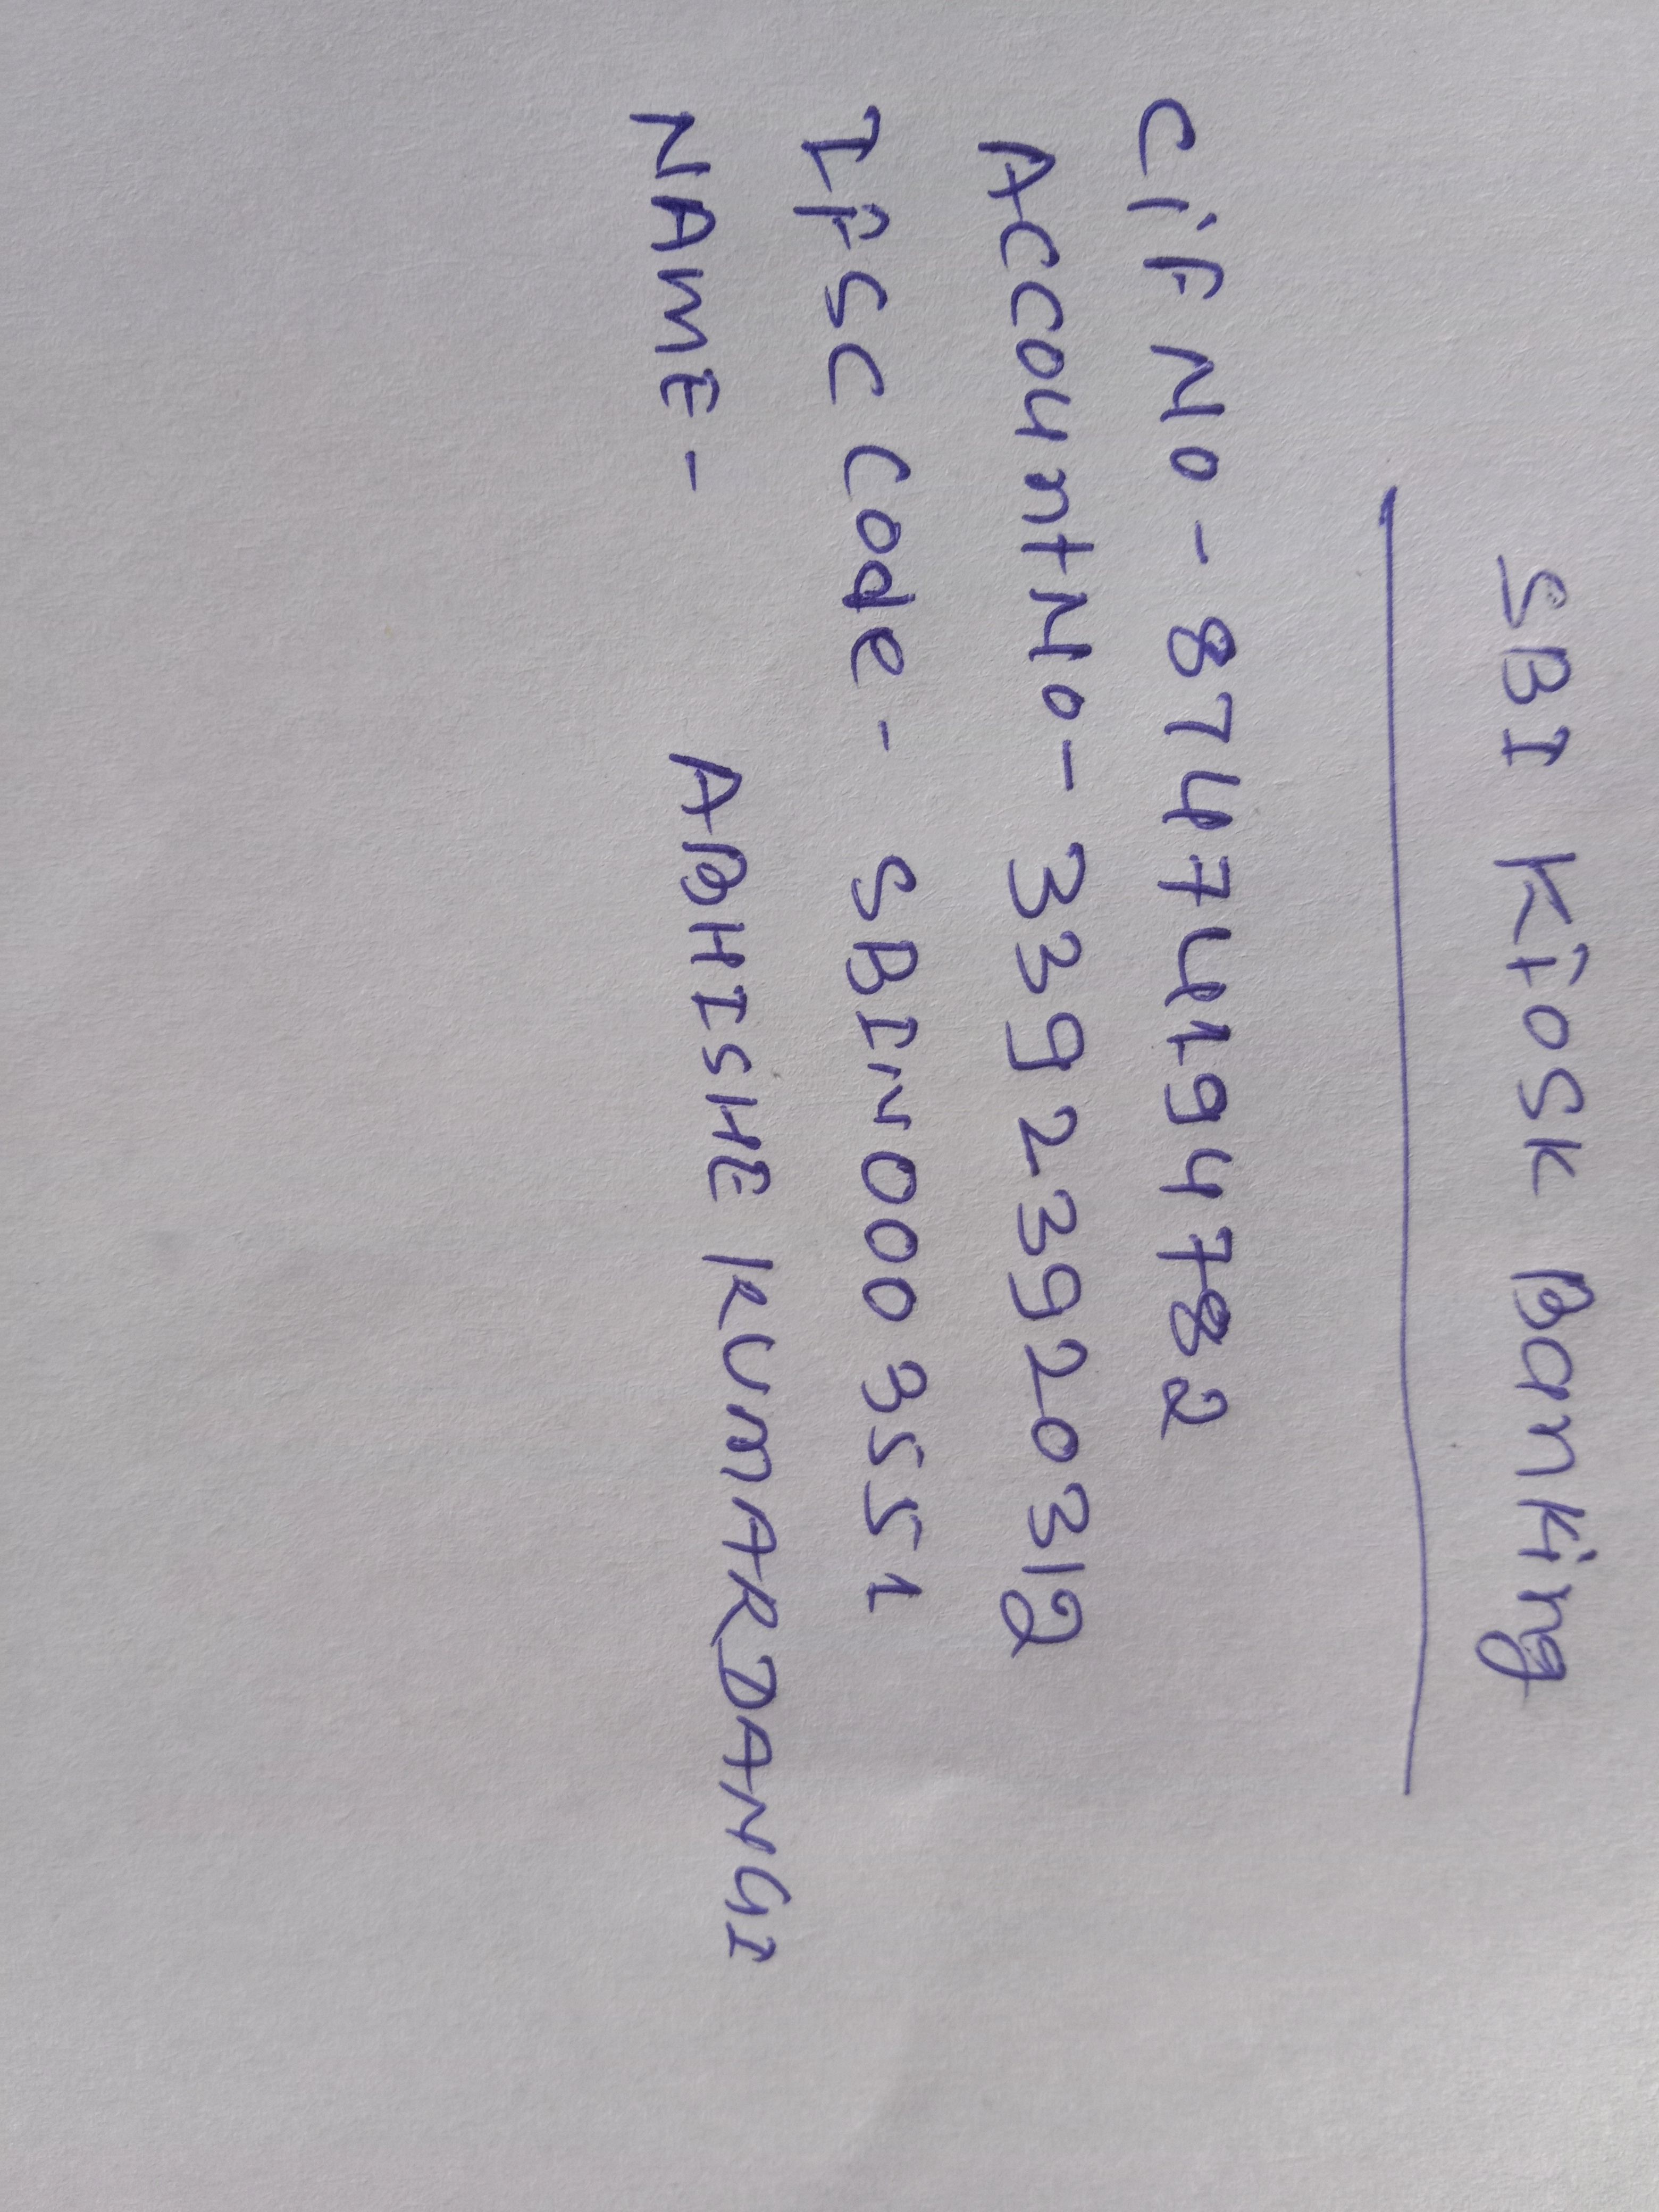 SBI Kiosk Banking
CiF No - 87474194782
Account No - 33923920312
IFSC Code - SBIN0003551
NAME - ABHISHE KUMAR DANGI